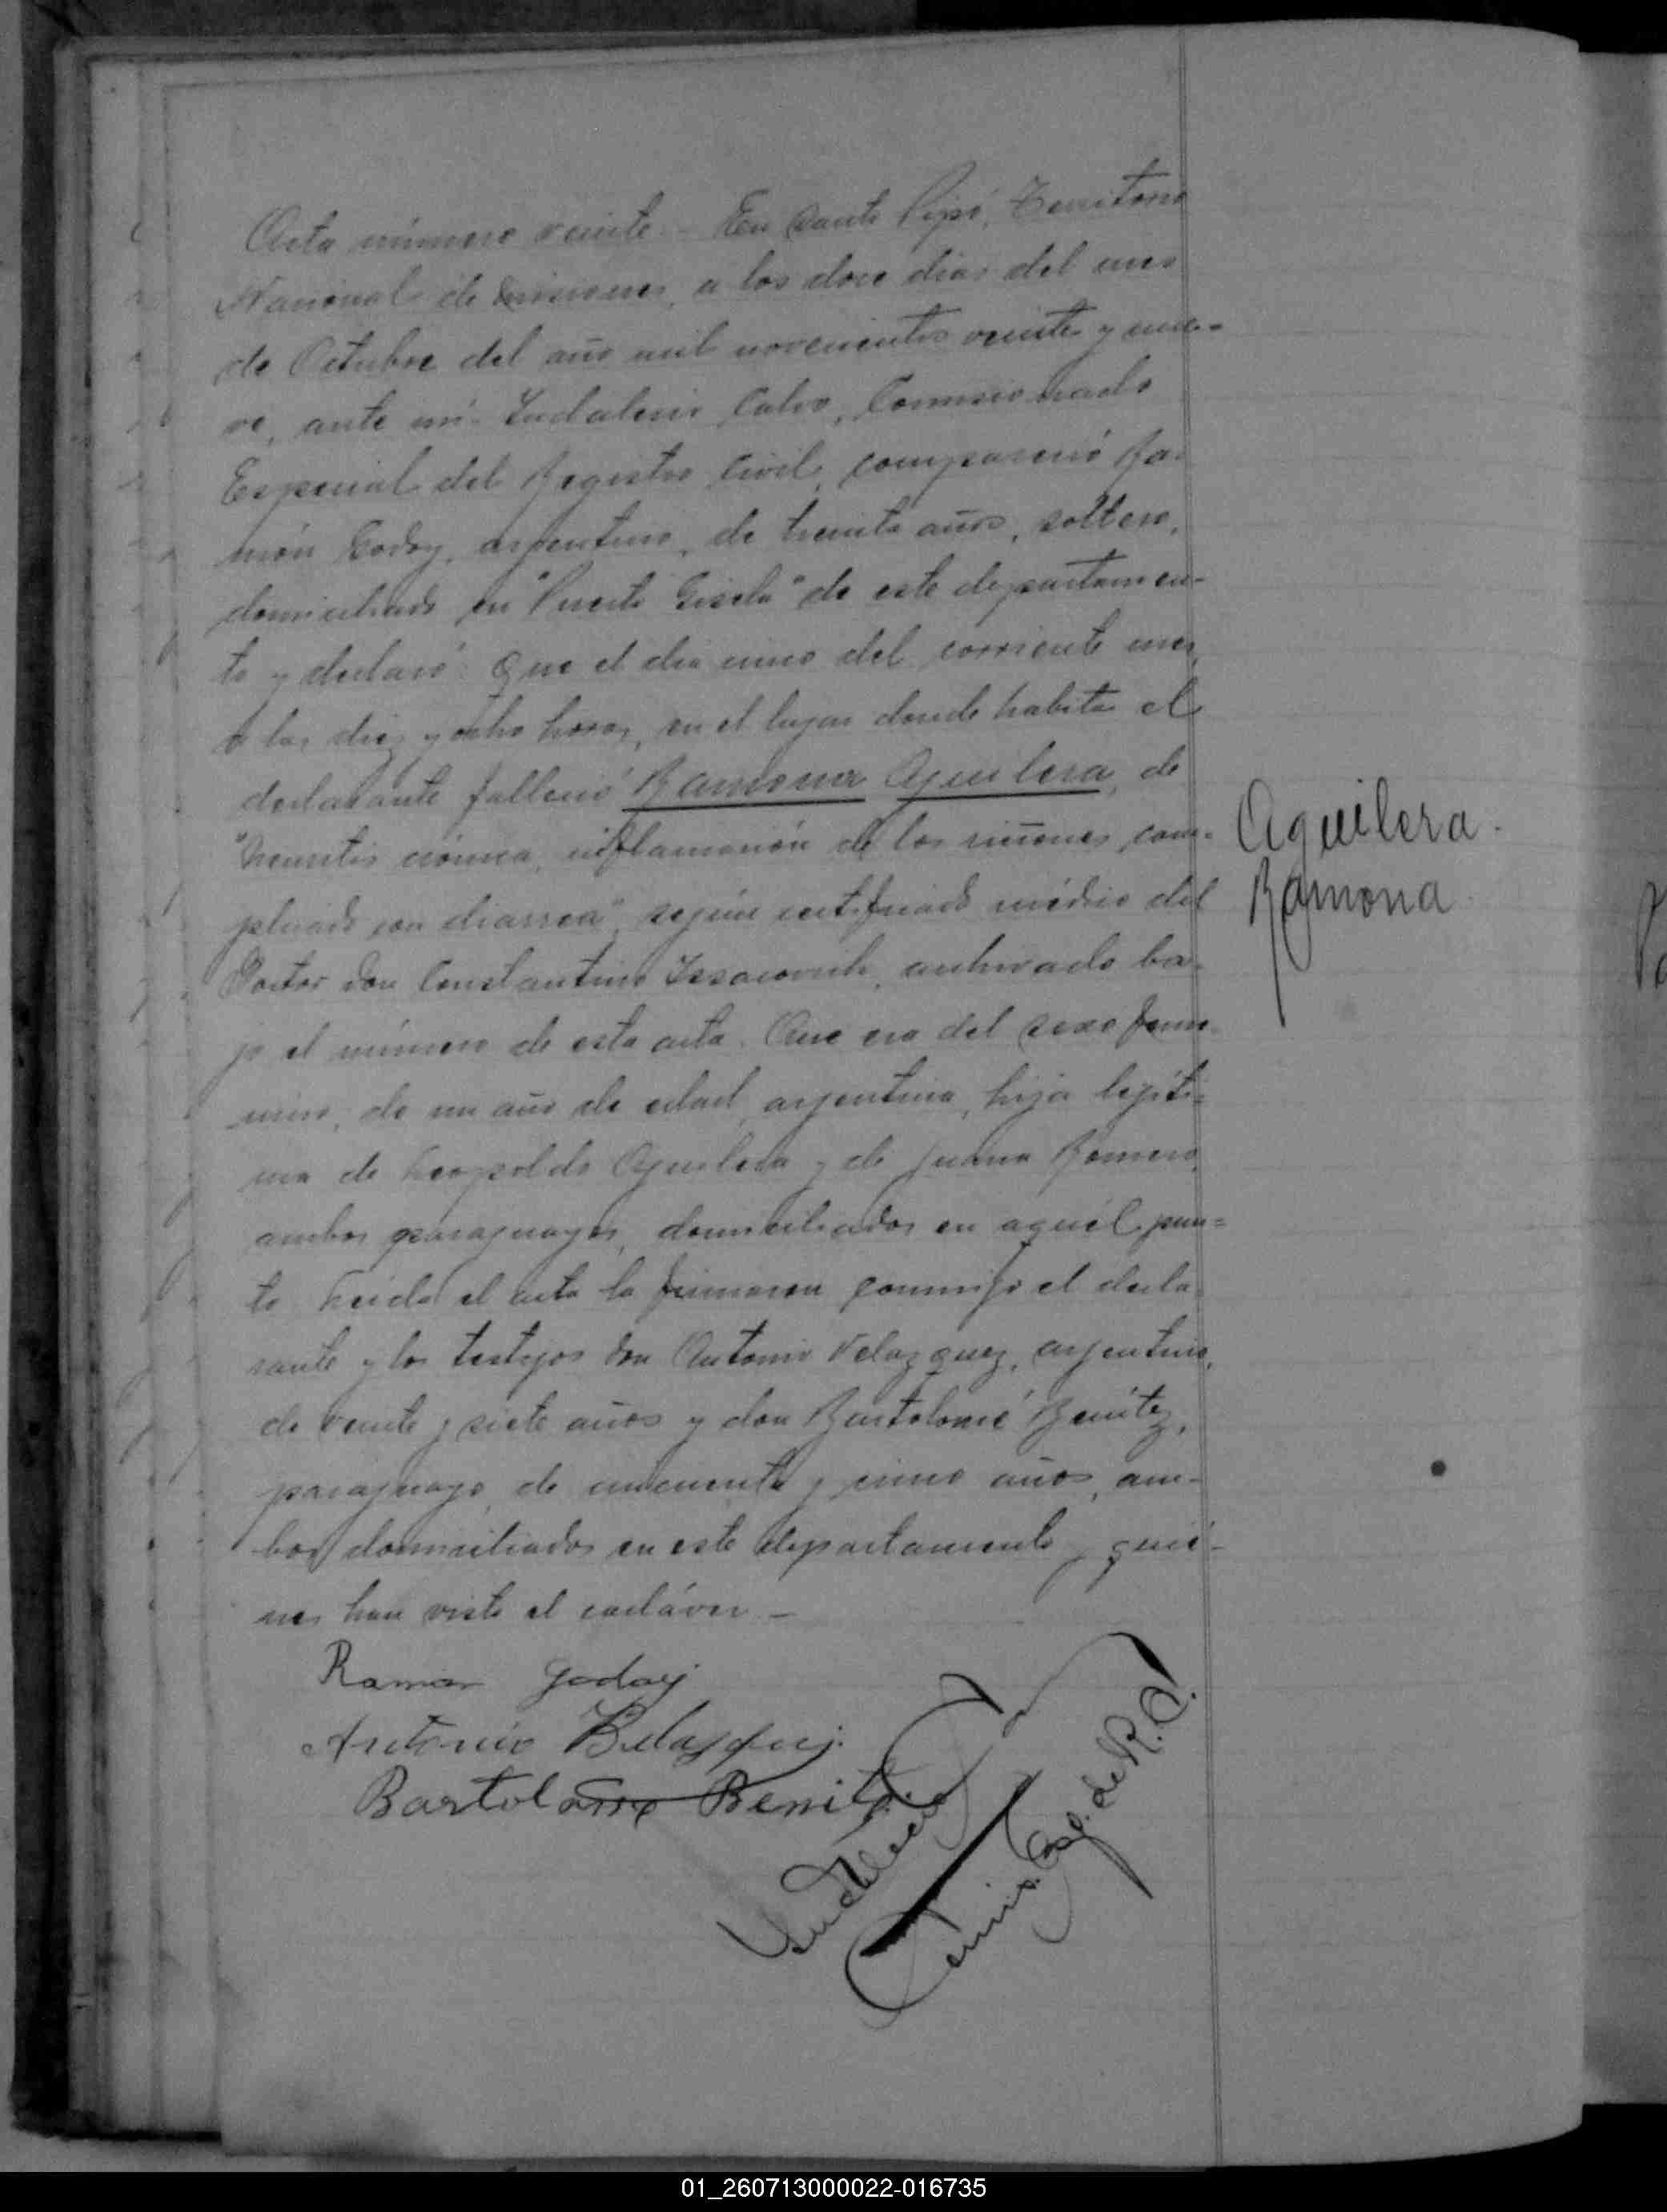 Acta número veinte.- En Santo Pipó, Territorio
Nacional de Misiones, a los doce dias del mes
de Octubre del año mil novecientos veinte y nue-
ve, ante mí Indalecio Calvo, Comisionado
Especial del Registro Civil, compareció Ra-
món Godoy, argentino, de treinta años, soltero,
domiciliado en "Puerto Gisela" de este departamen-
to y declaró: Que el dia cinco del corriente mes,
a las diez y ocho horas, en el lugar donde habita el
declarante falleció Ramona Aguilera, de
crónica, inflamación de los riñones com-
plicado con diarrea", según certificado médico del
Doctor don Constantino Issacovich, archivado ba-
jo el número de esta acta. Que era del sexo feme-
nino, de un año de edad, argentina, hija legíti-
ma de Leopoldo Aguilera y de Juana Romero,
ambos paraguayos, domiciliados en aquél pun-
to. Leida el acta la firmaron conmigo el decla-
rante y los testigos don Antonio Velazquez, argentino,
de veinte y siete años y don Bartolomé Benítez,
paraguayo, de cincuenta y cinco años, am-
bos domiciliados en este departamento y quié-
nes han visto el cadáver.-
Aguilera
Ramona
Ramon Godoy
Antonio Belasquez
Bartolome Benitez
Indalecio
Comis. Esp. de R. C.
01_260713000022-016735